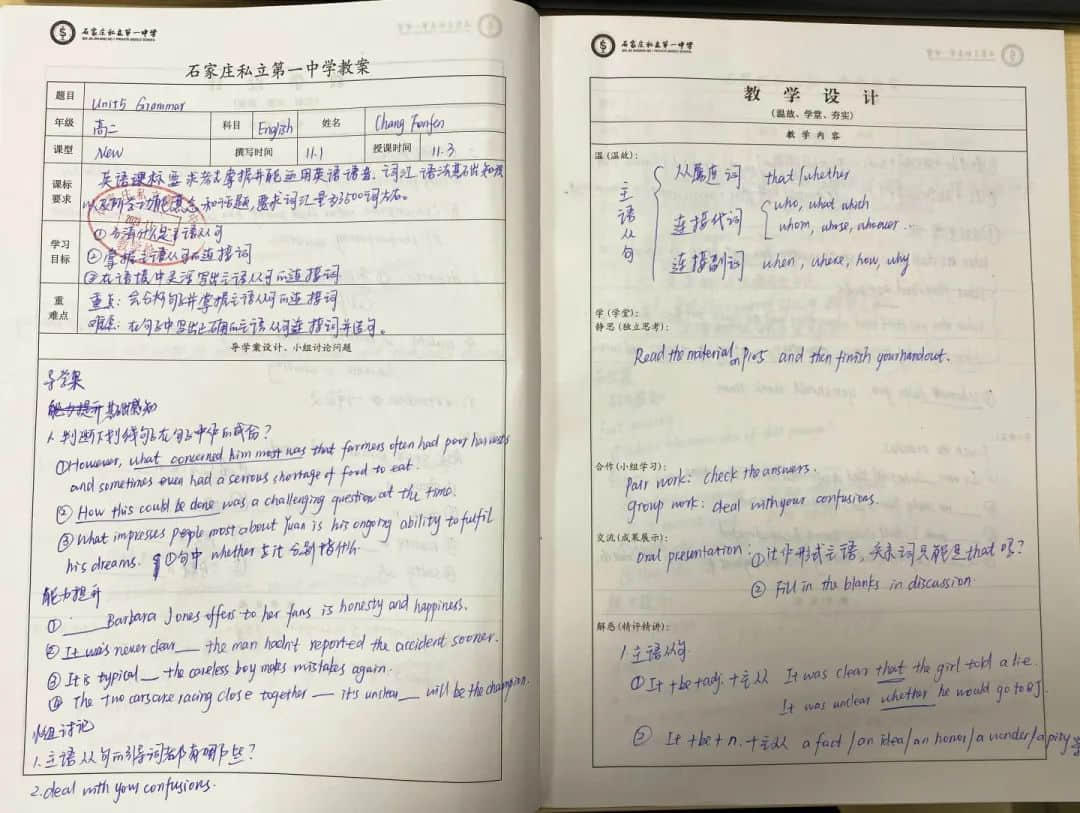 石家庄私立第一中学
石家庄私立第一中学教案
题目 Unit5 Grammar
年级 高二 科目 English 姓名 Chang Fenfen
课型 New 撰写时间 11.1 授课时间 11.3
课标要求 英语课标要求考生掌握并能运用英语语音、词汇、语法基础知识
以及所学功能意念和话题,要求词汇量为3500词左右。
学习目标 ①弄清什么是主语从句
②掌握主语从句的连接词
③在语境中灵活写出主语从句的连接词
重难点 重点:会分析句子并掌握主语从句的连接词
难点:在句子中写出正确的主语从句连接词并造句。
导学案设计、小组讨论问题
导学案
能力提升基础感知
1.判断下划线句子在句子中作的成分?
①However, what concerned him most was that farmers often had poor harvests
and sometimes even had a serious shortage of food to eat.
② How this could be done was a challenging question at the time.
③ What impresses people most about Yuan is his ongoing ability to fulfil
his dreams. ①句中 whether与it分别指什么
能力提升
① ___ Barbara Jones offers to her fans is honesty and happiness.
② It was never clear ___ the man hadn't reported the accident sooner.
③ It is typical __ the careless boy makes mistakes again.
④ The two cars are racing close together — it's unclear __ will be the champion.
小组讨论
1.主语从句的引导词都有哪些?
2.deal with your confusions.
石家庄私立第一中学
教 学 设 计
(温故、学堂、夯实)
教 学 内 容
温(温故):
主语从句
从属连词 that/whether
连接代词 who, what which
whom, whose, whoever.
连接副词 when, where, how, why
学(学堂):
静思(独立思考):
Read the material on P105 and then finish your handout.
合作(小组学习):
Pair work: check the answers.
Group work: deal with your confusions.
交流(成果展示):
Oral presentation: ①it作形式主语,关系词只能是that吗?
② Fill in the blanks in discussion
解惑(精评精讲):
1.主语从句
① It +be+adj. +主从 It was clear that the girl told a lie.
It was unclear whether he would go to BJ.
② It +be+n. +主从 a fact / an idea / an honor / a wonder / a pity等